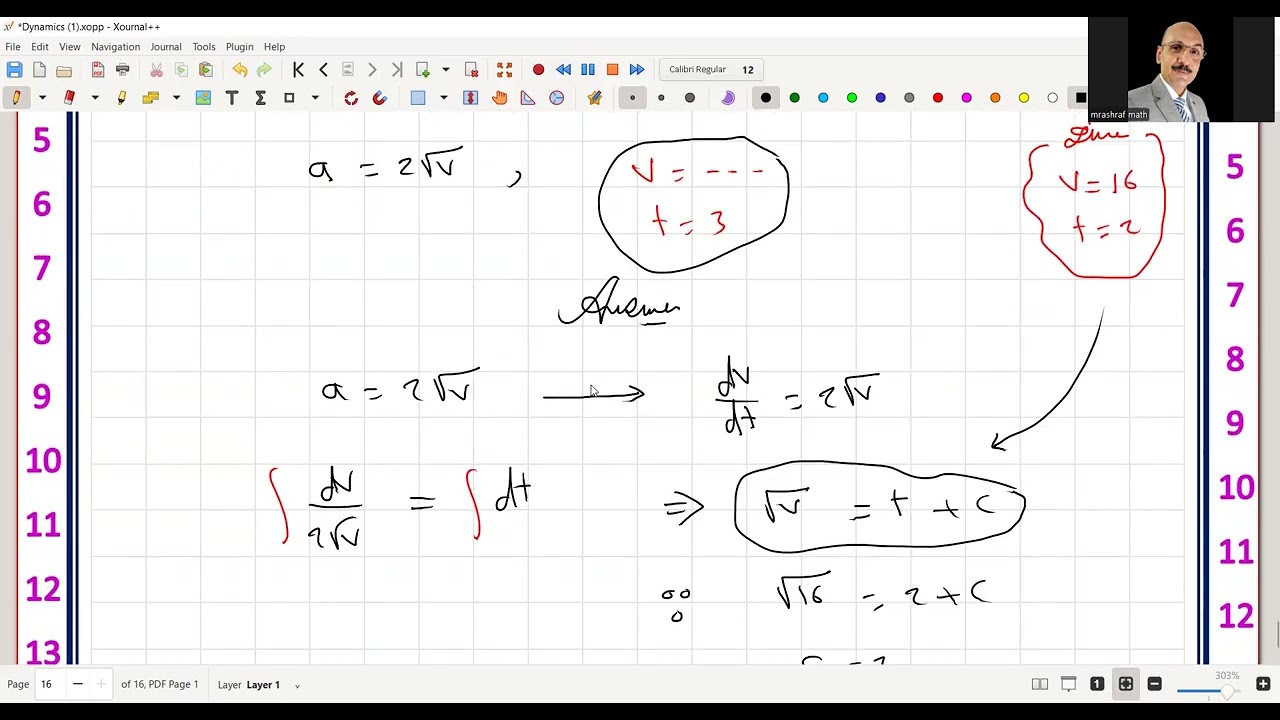 *Dynamics (1).xopp - Xournal++
File Edit View Navigation Journal Tools Plugin Help
Calibri Regular 12
mrashraf math
5 a = 2√v , v = --- v = 16 5
6 t = 3 t = 2 6
7 7
8 Answer 8
9 a = 2√v → dv/dt = 2√v 9
10 10
11 ∫ dv/2√v = ∫ dt ⇒ √v = t + c 11
12 √16 = 2 + c 12
13
Page 16 of 16, PDF Page 1 Layer Layer 1 1 303%